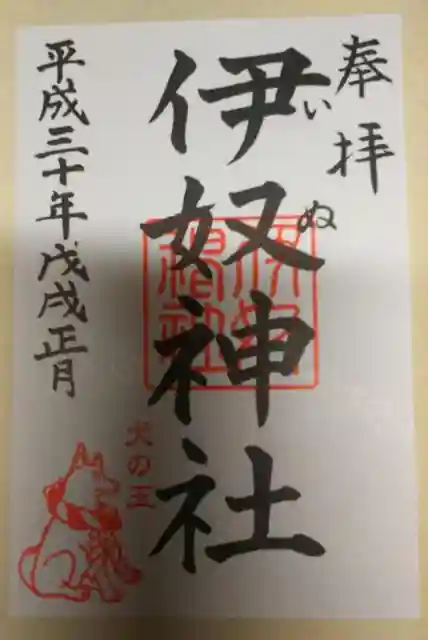 奉拝
伊奴神社
いぬ
犬の王
平成三十年戊戌正月